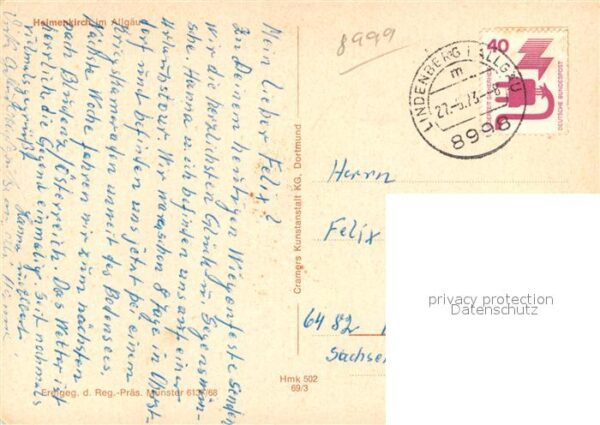 Heimenkirch im Allgäu
8999
Mein lieber Felix!
Zu Deinem heutigen Wiegenfeste senden
wir die herzlichsten Glück- u. Segenswün-
sche. Hanna u. ich befinden uns auf einer
Urlaubstour. Wir waren schon 8 Tage in Oberst-
dorf und befinden uns jetzt bei einem
Kriegskameraden unweit des Bodensees.
Nächste Woche fahren wir zum nächsten
nach Bludenz/Österreich. Das Wetter ist
herrlich, die Gegend einmalig. Seit nochmals
gegrüßt
Hanna
Erengeg. d. Reg.-Präs. Münster 613/68
Cramers Kunstanstalt KG, Dortmund
Hmk 502
69/3
LINDENBERG I ALLGÄU
m
27.-6.73
8998
40
DEUTSCHE BUNDESPOST
Herrn
Felix
6482
Sachse
privacy protection
Datenschutz